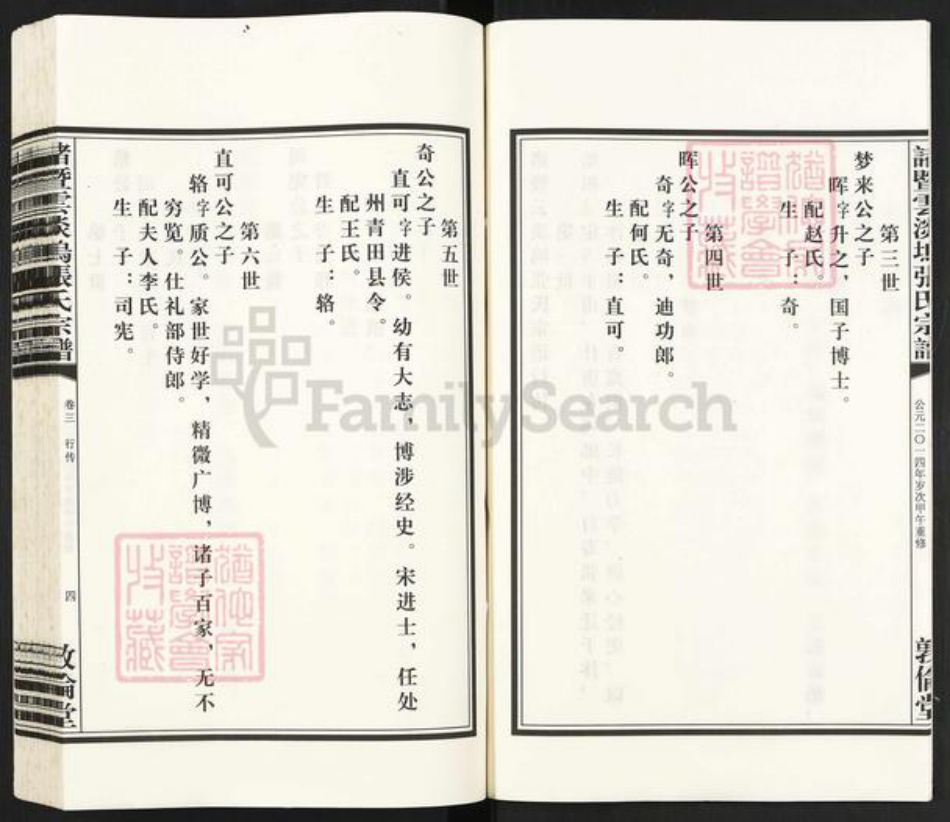 诸暨雲溪塢張氏宗譜
公元二〇一四年岁次甲午重修
敦倫堂
第三世
梦来公之子
晖字升之，国子博士。
配赵氏。
生子：奇。
第四世
晖公之子
奇字无奇，迪功郎。
配何氏。
生子：直可。
第五世
奇公之子
直可字进侯。幼有大志，博涉经史。宋进士，任处
州青田县令。
配王氏。
生子：辂。
第六世
直可公之子
辂字质公。家世好学，精微广博，诸子百家，无不
穷览。仕礼部侍郎。
配夫人李氏。
生子：司宪。
張氏宗譜
卷三 行传
四
敦倫堂
猶他家
譜學會
收藏
FamilySearch